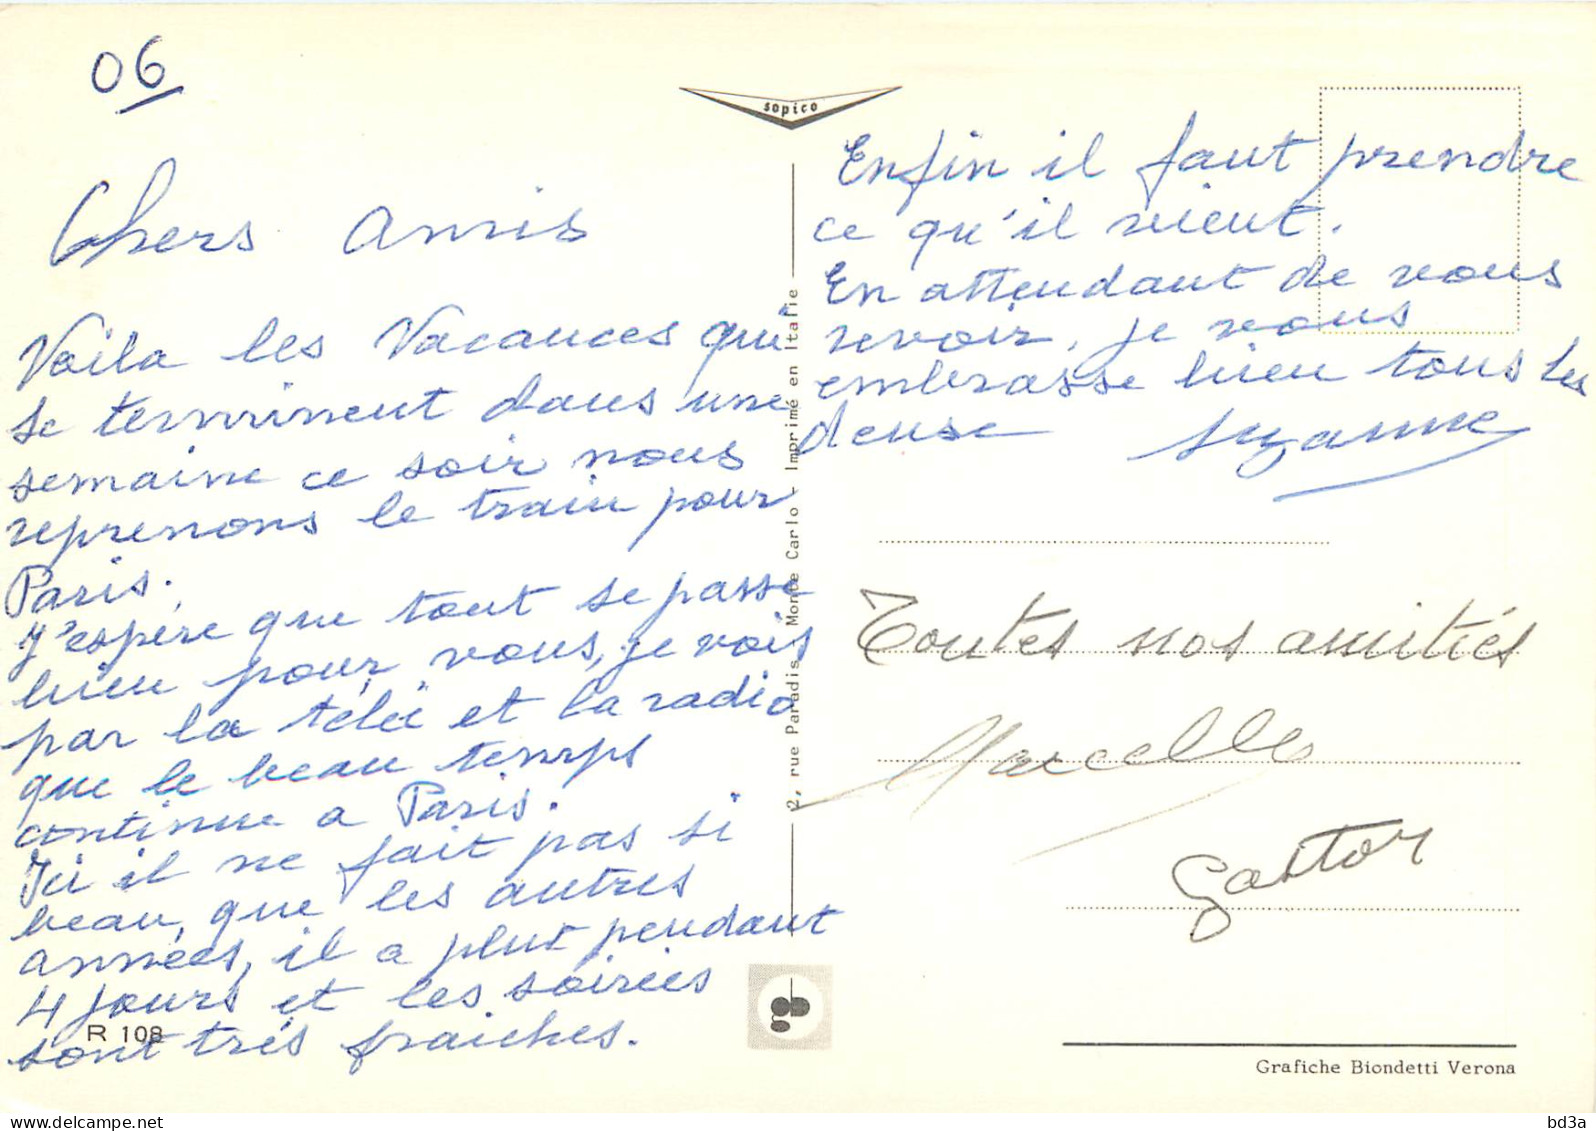 06
sopico
Chers amis
Voila les Vacances qui
se terminent dans une
semaine ce soir nous
reprenons le train pour
Paris.
J'espère que tout se passe
bien pour vous, je vois
par la télé et la radio
que le beau temps
continue a Paris.
Ici il ne fait pas si
beau, que les autres
années, il a plut pendant
4 jours et les soirées
sont très fraiches.
R 108
2, rue Paradis Monte Carlo - Imprimé en Italie
Enfin il faut prendre
ce qu'il vient.
En attendant de vous
revoir, je vous
embrasse bien tous les
deuse Suzanne
Toutes nos amitiés
Marcelle
Gaston
Grafiche Biondetti Verona
bd3a